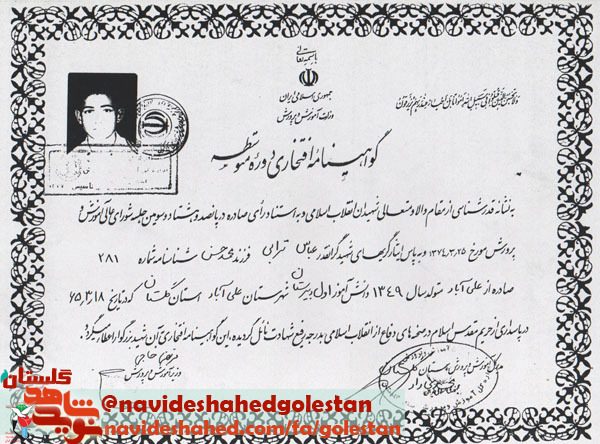 باسمه تعالی
جمهوری اسلامی ایران
وزارت آموزش و پرورش
گواهینامه افتخاری دوره متوسطه
به نشانه قدرشناسی از مقام والا و متعالی شهیدان انقلاب اسلامی و به استناد رأی صادره در پانصد و هشتاد و سومین جلسه شورای عالی آموزش و
پرورش مورخ ۱۳۷۴٫۳٫۲۵ و به پاس ایثارگریهای شهید گرانقدر عباس ترابی فرزند محمدحسن شناسنامه شماره ۲۸۱
صادره از علی آباد متولد سال ۱۳۴۹ دانش آموز اول دبیرستان شهرستان علی آباد استان گلستان که در تاریخ ۶۵٫۳٫۱۸
در پاسداری از حریم مقدس اسلام در صحنه های دفاع از انقلاب اسلامی به درجه رفیع شهادت نائل گردیده، این گواهینامه افتخاری به آن شهید بزرگوار اعطا میگردد.
مرتضی حاجی
وزیر آموزش و پرورش
مدیرکل آموزش و پرورش استان گلستان
گلستان
نوید شاهد
@navideshahedgolestan
navideshahed.com/fa/golestan